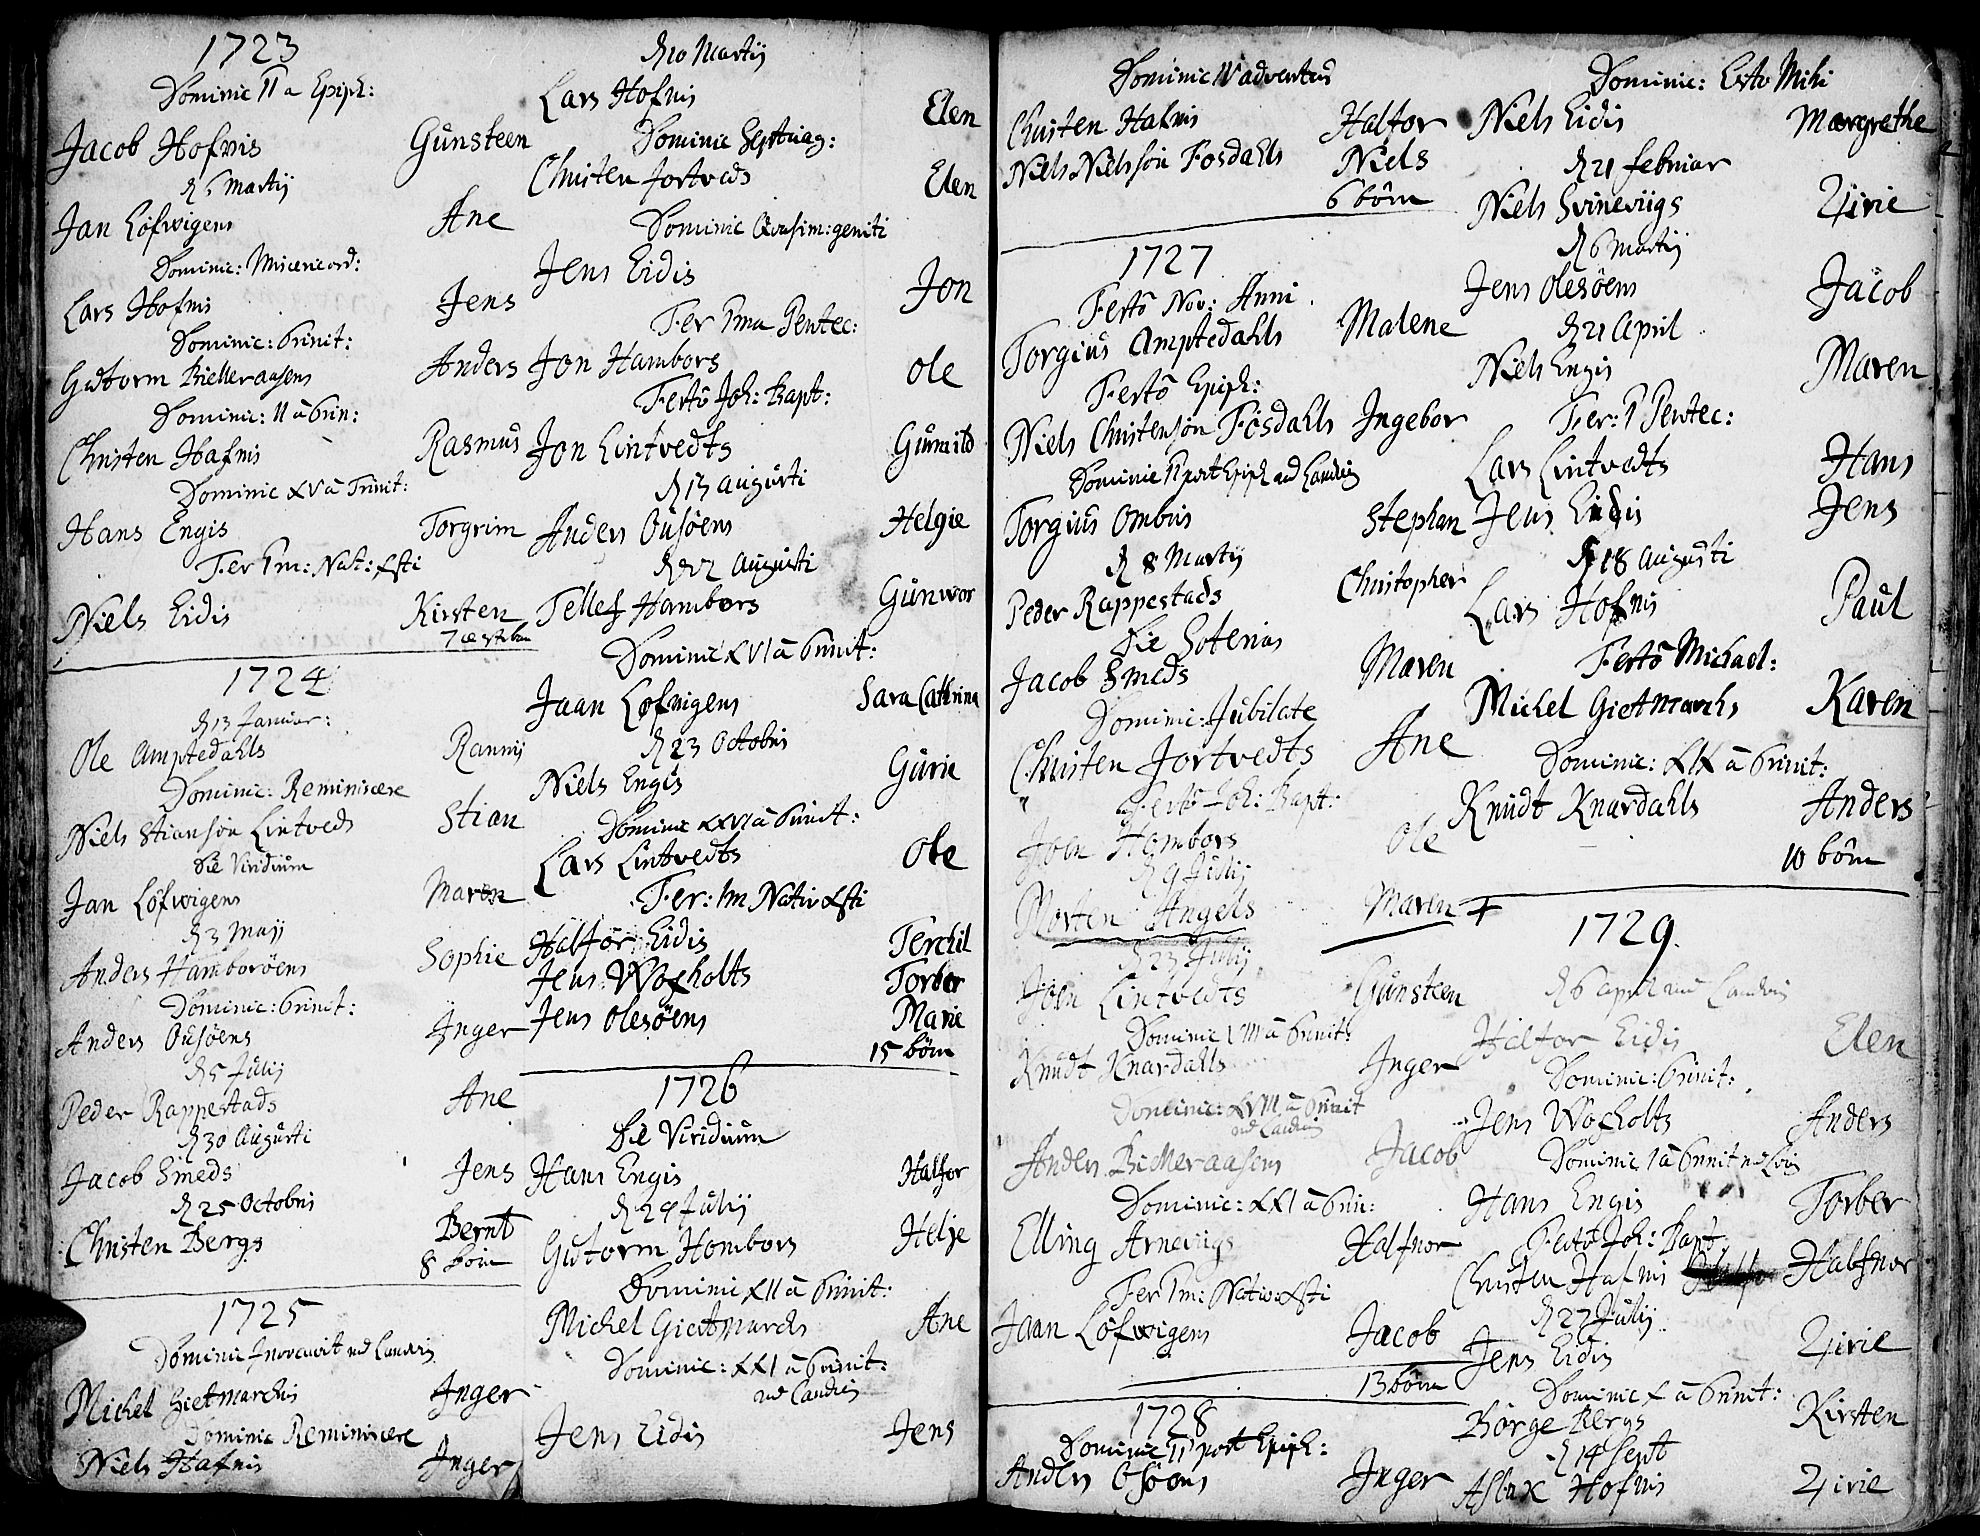 1723
Dominic II a Epiph:
Jacob Hofnis Gunsteen
d 5 Martij
Jan Løfwigens Ane
Dominic: Misericord:
Lars Hofnis Jens
Dominic: Trinit:
Gutorm Bielleraasens Anders
Dominic: II â Trin:
Christen Hafnis Rasmus
Dominic XV â Trinit:
Hans Engis Torgrim
Fer Im: Nat: Xsti
Niels Eidis Kirsten
1724
d 13 Januar:
Ole Amptedahls Rannij
Dominic: Reminiscere
Niels Stiansøn Lintveds Stian
Die Viridium
Jan Løfwigens Maren
d 3 Maji
Anders Hamborøens Sophie
Dominic: Trinit:
Anders Ousøens Inger
d 5 Julij
Peder Rappestads Ane
d 30 Augusti
Jacob Smeds Jens
d 25 Octobris
Christen Bergs Bernt
8 børn
1725
Dominic Invocavit ved Landvig
Michel Gietmarchis Inger
Dominic Reminiscere
Niels Hafnis Inger
d 10 Martij
Lars Hofnis Elen
Dominic Septuag:
Christen Jortveds Elen
Dominic Quasim:geniti
Jens Eidis Jon
Fer Ima Pentec:
Jon Hambors Ole
Festo Joh: Bapt:
Jon Lintvedts Gunnild
d 13 Augusti
Anders Ousøens Helgie
d 22 Augusti
Tellef Hambors Gunwor
Dominic XVI â Trinit:
Jaan Løfwigens Sara Cathrina
d 23 Octobris
Niels Engis Gurie
Dominic XXVI â Trinit:
Lars Lintvedts Ole
Fer: Im Nativ Xsti
Halfor Eidis Terchil
Jens Woxholts Torber
Jens Olesøens Marie
15 børn
1726
Die Viridium
Hans Engis Halfor
d 29 Julij
Gutorm Hombors Helje
Dominic XII â Trinit:
Michel Gietmarchs Ane
Dominic: XXI â Trinit:
ved Landvig
Jens Eidis Jens
Dominic IV adventus
Christen Hafnis Halfor
Niels Nielssøn Fosdahls Niels
6 børn
1727
Festo Nov: Anni
Torgius Amptedahls Malene
Festo Epiph:
Niels Christensøn Fosdahls Ingebor
Dominic II post Epiph ved Landvig
Torgius Ombris Stephan
d 8 Martij
Peder Rappestads Christopher
Die Soterias
Jacob Smeds Maren
Dominic: Jubilate
Christen Jortvedts Ane
Festo Joh: Bapt:
Joen Hambors Ole
d 9 Julij
Morten Angels Maren
d 23 Julij
Joen Lintvedts Gunsteen
Dominic VIII â Trinit:
Knudt Knardahls Inger
Dominic: XVIII â Trinit
ved Landvig
Anders Bielleraasens Jacob
Dominic: XXI â Trin:
Elling Arnevigs Halfnor
Fer Im: Nativ: Xsti
Jaan Løfwigens Jacob
13 børn
1728
Dominic II post Epiph:
Anders Osøens Inger
Dominic: Esto Mihi
Niels Eidis Margrethe
d 21 Februar
Niels Svinevigs Zirie
d 6 Martij
Jens Olesøens Jacob
d 21 April
Niels Engis Maren
Fer: I Pentec:
Lars Lintvedts Hans
Jens Eidis Jens
d 18 Augusti
Lars Hofnis Paul
Festo Michael:
Michel Gietmarchs Karen
Dominic: XIX â Trinit:
Knudt Knardahls Anders
10 børn
1729.
d 6 april ved Landvig
Halfor Eidis Elen
Dominic: Trinit:
Jens Woxholts Anders
Dominic I â Trinit
Hans Engis Torber
Festo Joh: Bapt:
Christen Hafnis Halfnor
d 22 Julij
Jens Eidis Zirie
Dominic X â Trinit:
Børge Bergs Kirsten
d 14 Sept
Aslax Hofnis Zirie